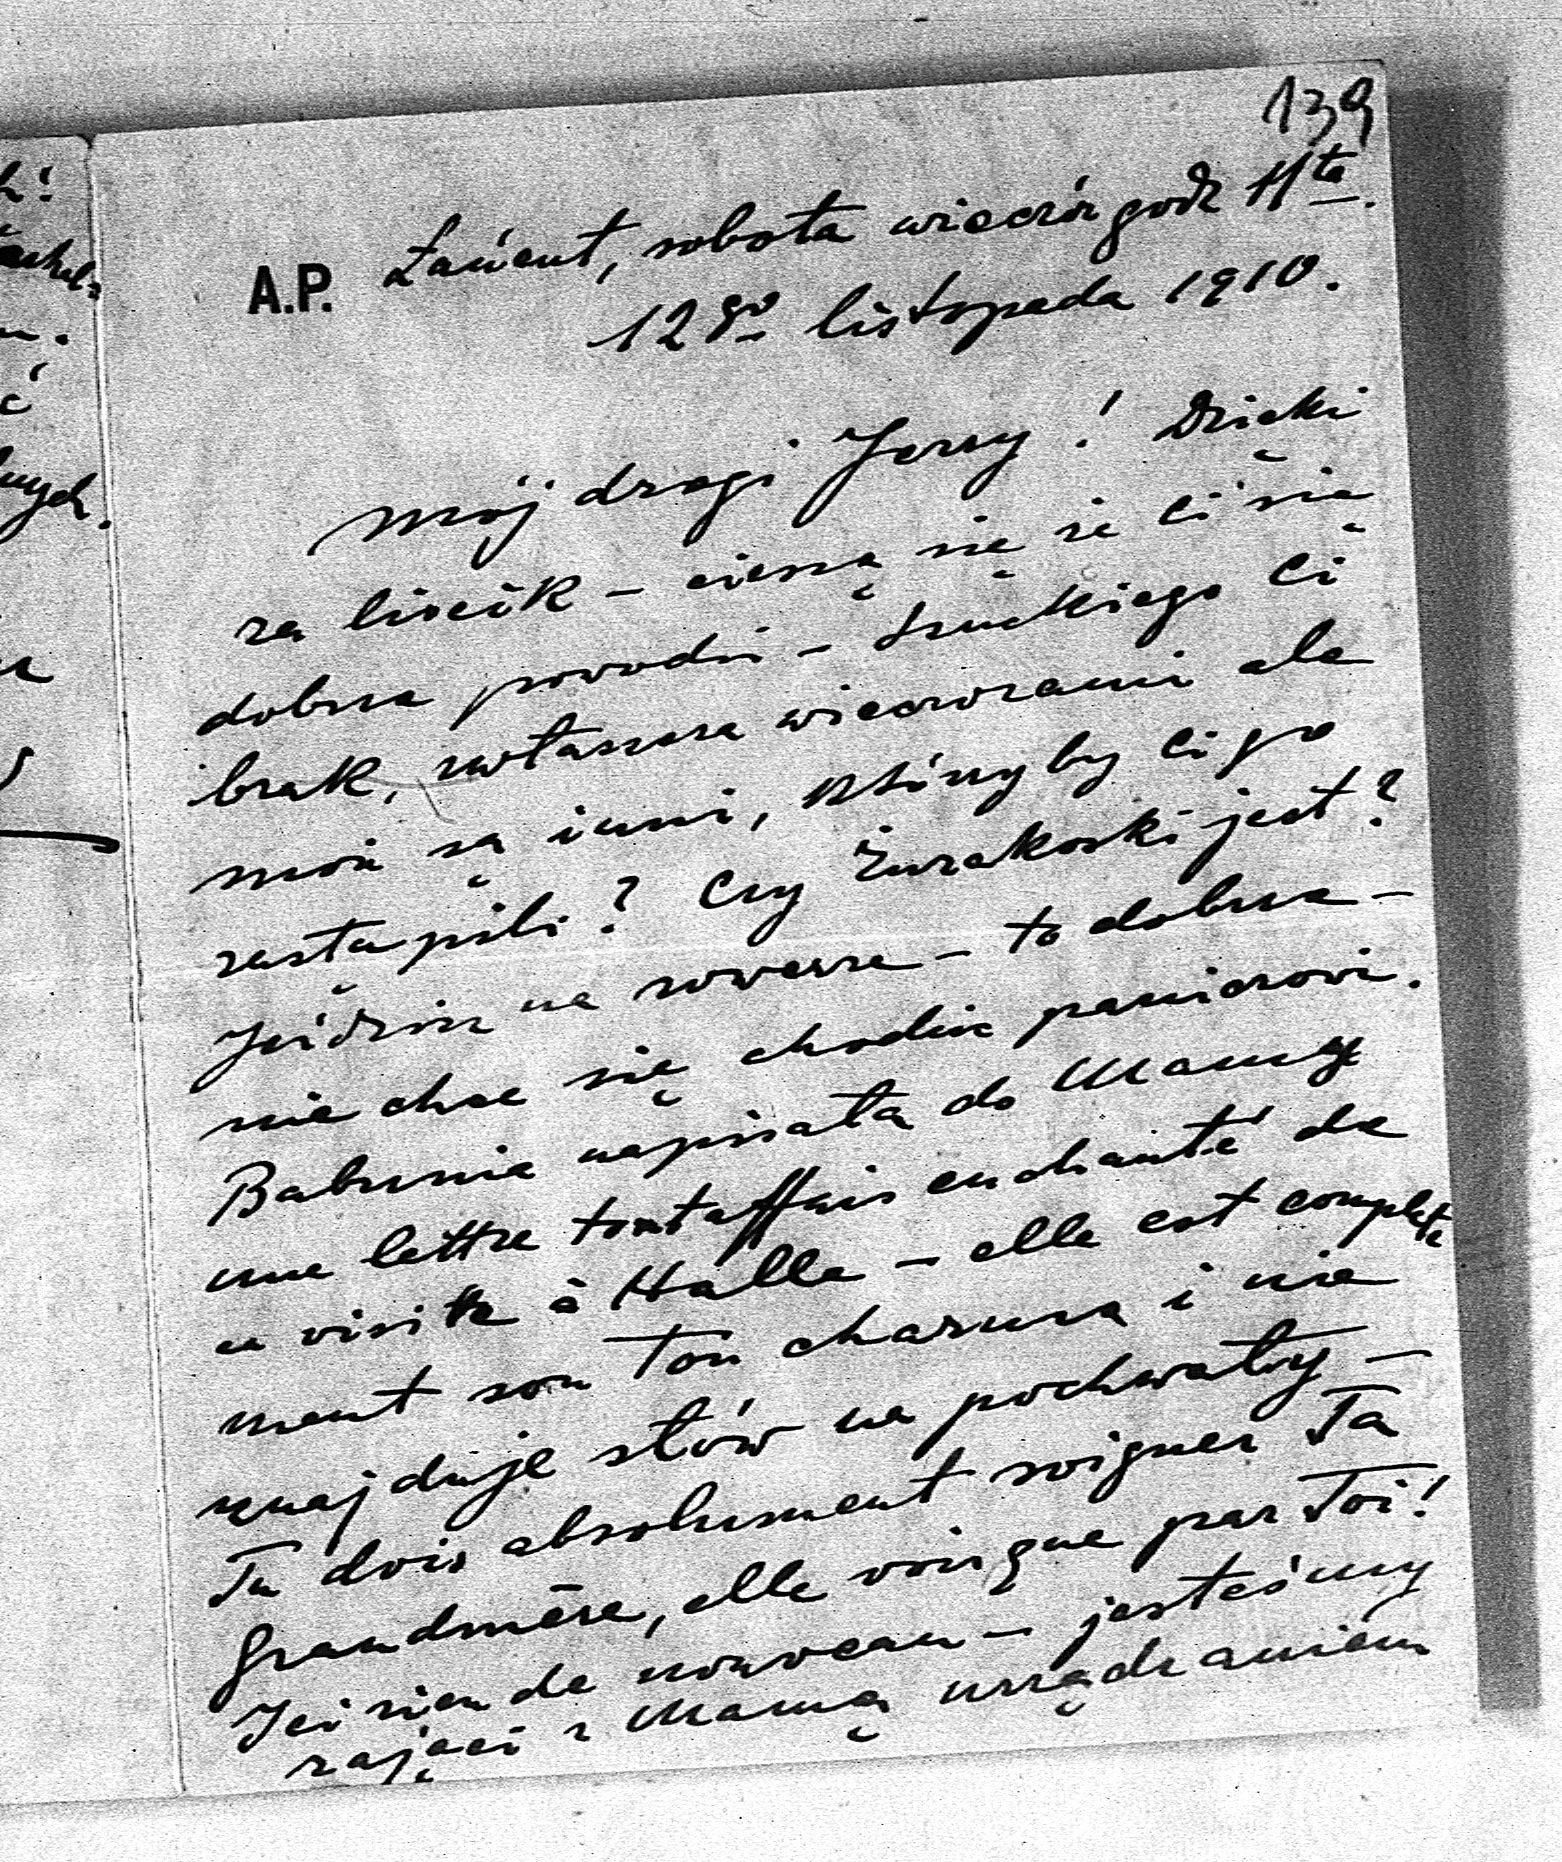 139
A.P. Łańcut, sobota wieczór godz 11ta.
12go listopada 1910.
Mój drogi Jerzy! Dzięki
za liścik – cieszę się że Ci się
dobrze powodzi – Łuckiego Ci
brak, zwłaszcza wieczorami ale
może są inni, którzyby Ci go
zastąpili? Czy Żurakoski jest?
Jeździsz na rowerze – to dobrze –
nie chce się chodzić paniczowi.
Babunia napisała do Mamy
une lettre toutaffais enchanté de
sa visite à Halle – elle est complète
ment sous Ton charme i nie
znajduje słów na pochwały –
Tu dois absolument soigner Ta
Grandmère, elle vois que par Toi!
Ici rien de nouveau – jesteśmy
zajęci z Mamą urządzaniem
ch.